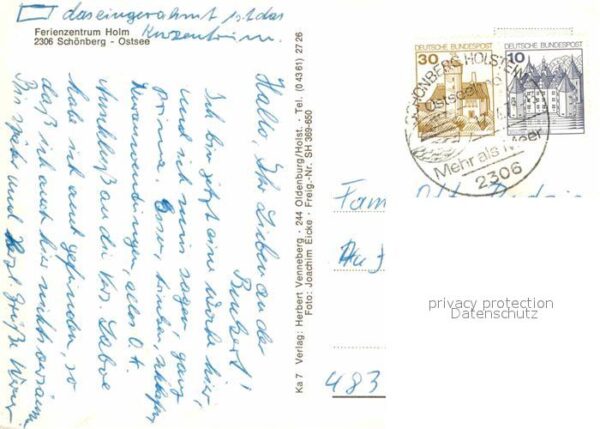 das eingerahmt ist das
Kurzentrum.
Ferienzentrum Holm
2306 Schönberg - Ostsee
Hallo, Ihr Lieben an der
Ich bin jetzt eine Woche hier,
und ich muss sagen, ganz
prima. Essen, trinken, schlafen,
alles O.K.
Anschluß an die
hab ich gefunden, so
daß ich mich hier nicht
Bis später und Herzl. Grüße
Ka 7 Verlag: Herbert Venneberg · 244 Oldenburg/Holst. · Tel. (0 43 61) 27 26
Foto: Joachim Eicke · Freig.-Nr. SH 389-650
DEUTSCHE BUNDESPOST
30
DEUTSCHE BUNDESPOST
10
SCHÖNBERG HOLSTEIN
Ostsee
Mehr als Meer
2306
Fam
483
privacy protection
Datenschutz